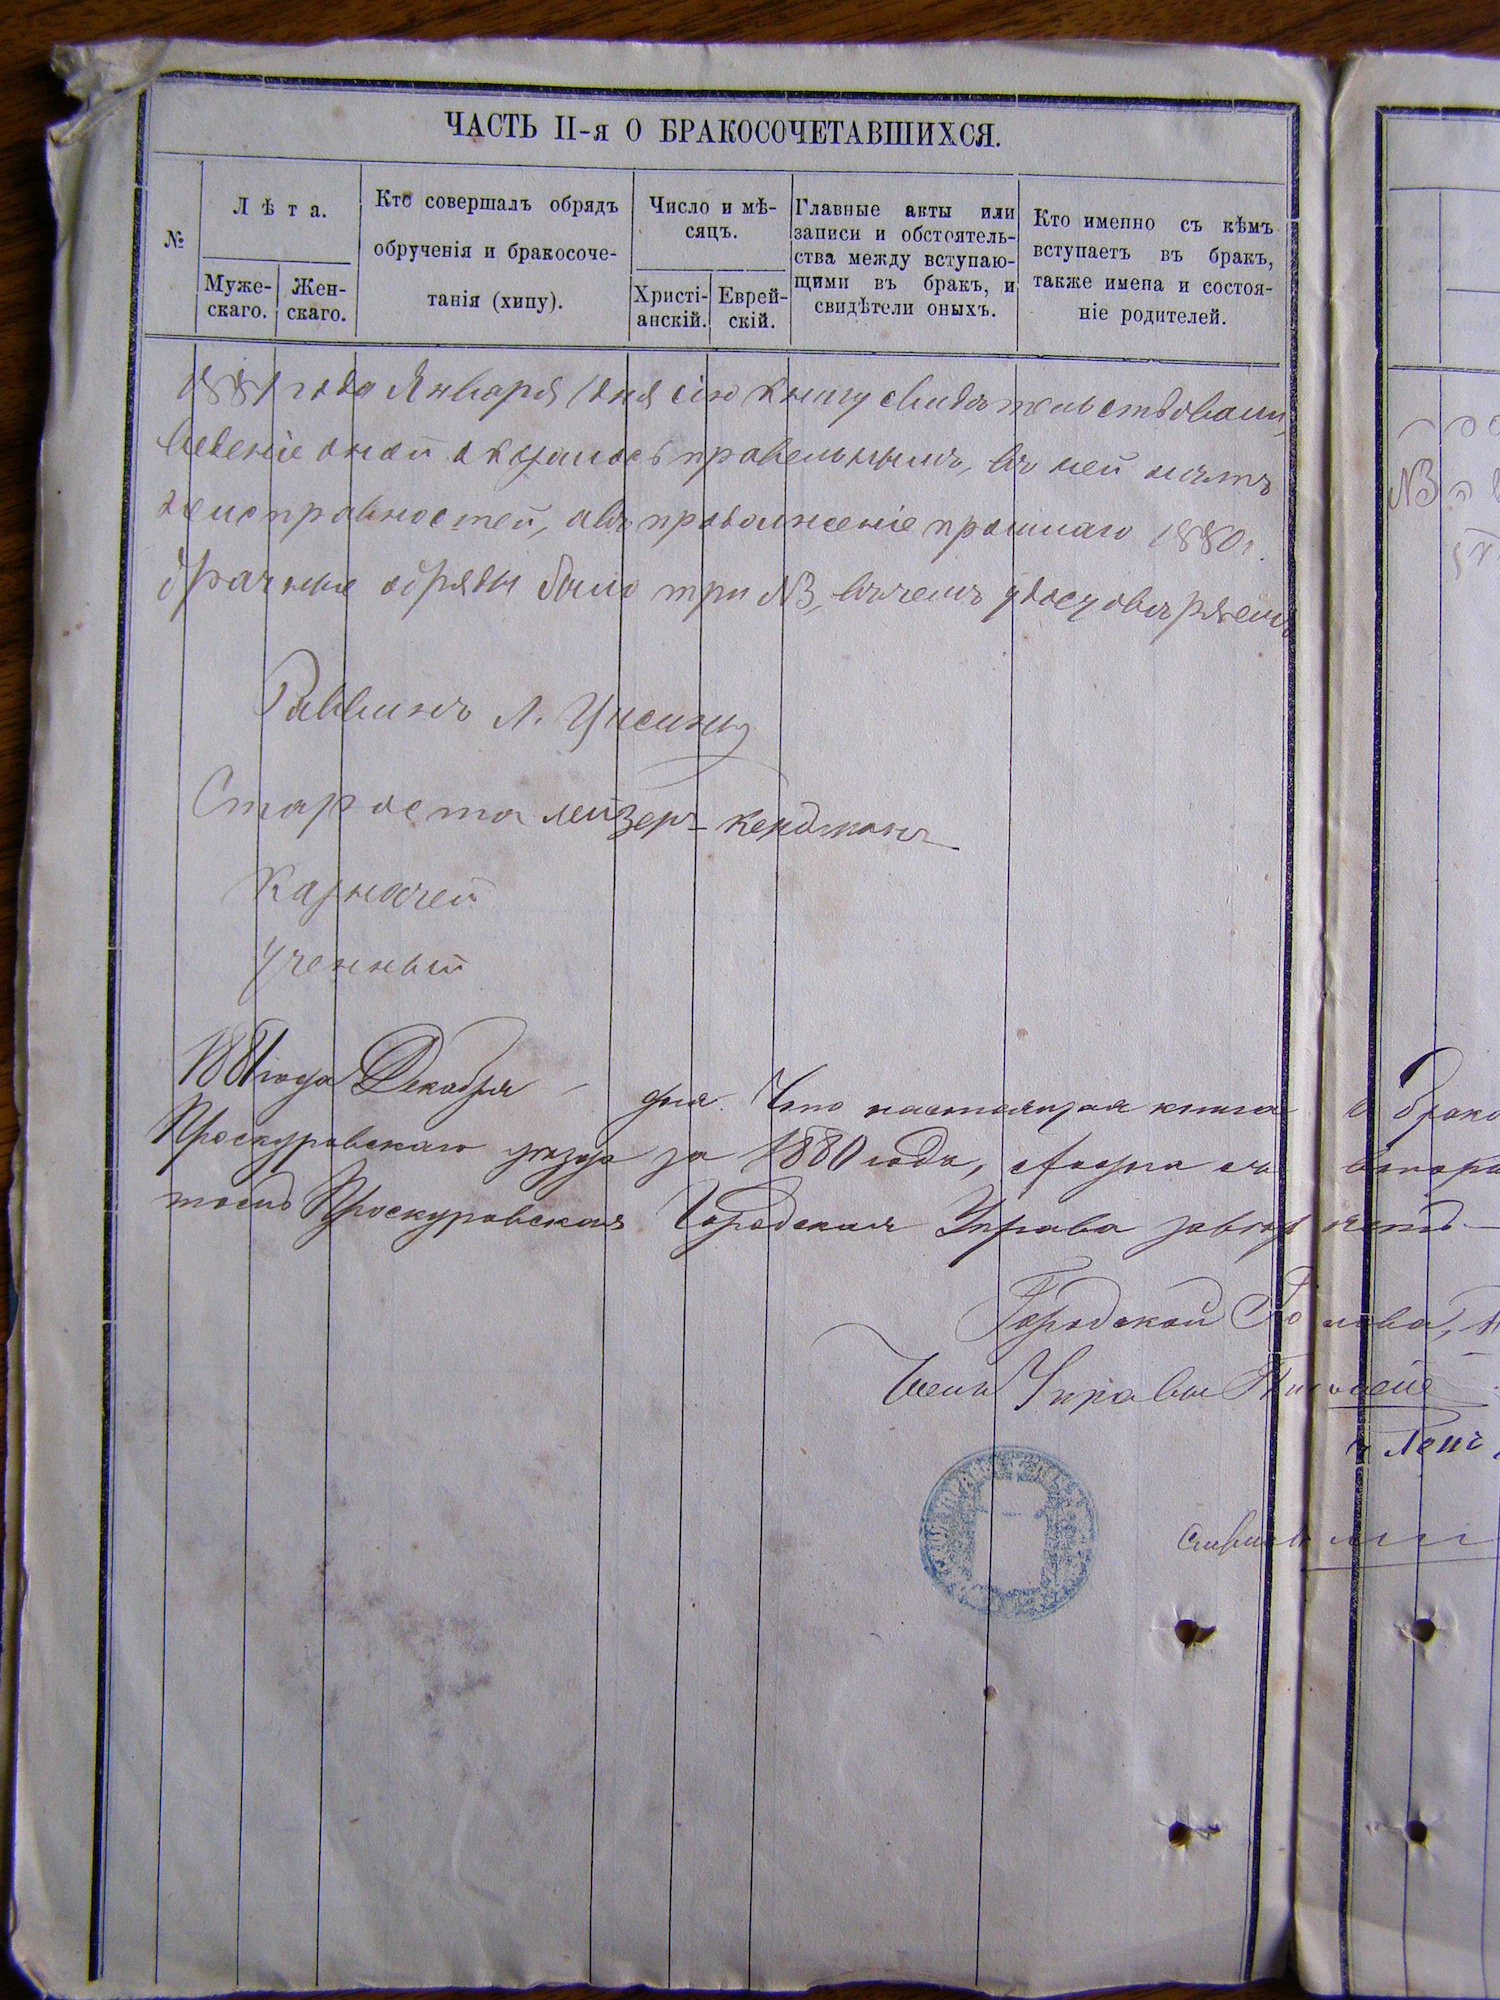 ЧАСТЬ II-я О БРАКОСОЧЕТАВШИХСЯ.
№
Лѣта.
Муже-
скаго.
Жен-
скаго.
Кто совершалъ обрядъ
обрученія и бракосоче-
танія (хипу).
Число и мѣ-
сяцъ.
Христі-
анскій.
Еврей-
скій.
Главные акты или
записи и обстоятель-
ства между вступаю-
щими въ бракъ, и
свидѣтели оныхъ.
Кто именно съ кѣмъ
вступаетъ въ бракъ,
также имена и состоя-
ніе родителей.
1881 года Января 1 дня сію книгу свидѣтельствовали,
веденіе оной оказалось правельнымъ, въ ней нѣтъ
неисправностей, авъ продолженіе прошлаго 1880 г.
брачные обряды было три №3, въ чемъ удостовѣряемъ
Раввинъ Л.
Староста Лейзеръ
Казначей
Ученный
1881 года Декабря дня. Что настоящая книга о брако
Проскуровскаго уѣзда за 1880 годъ,
Проскуровская Городская Управа
Городской Голова,
Члены Управы
Член
№3